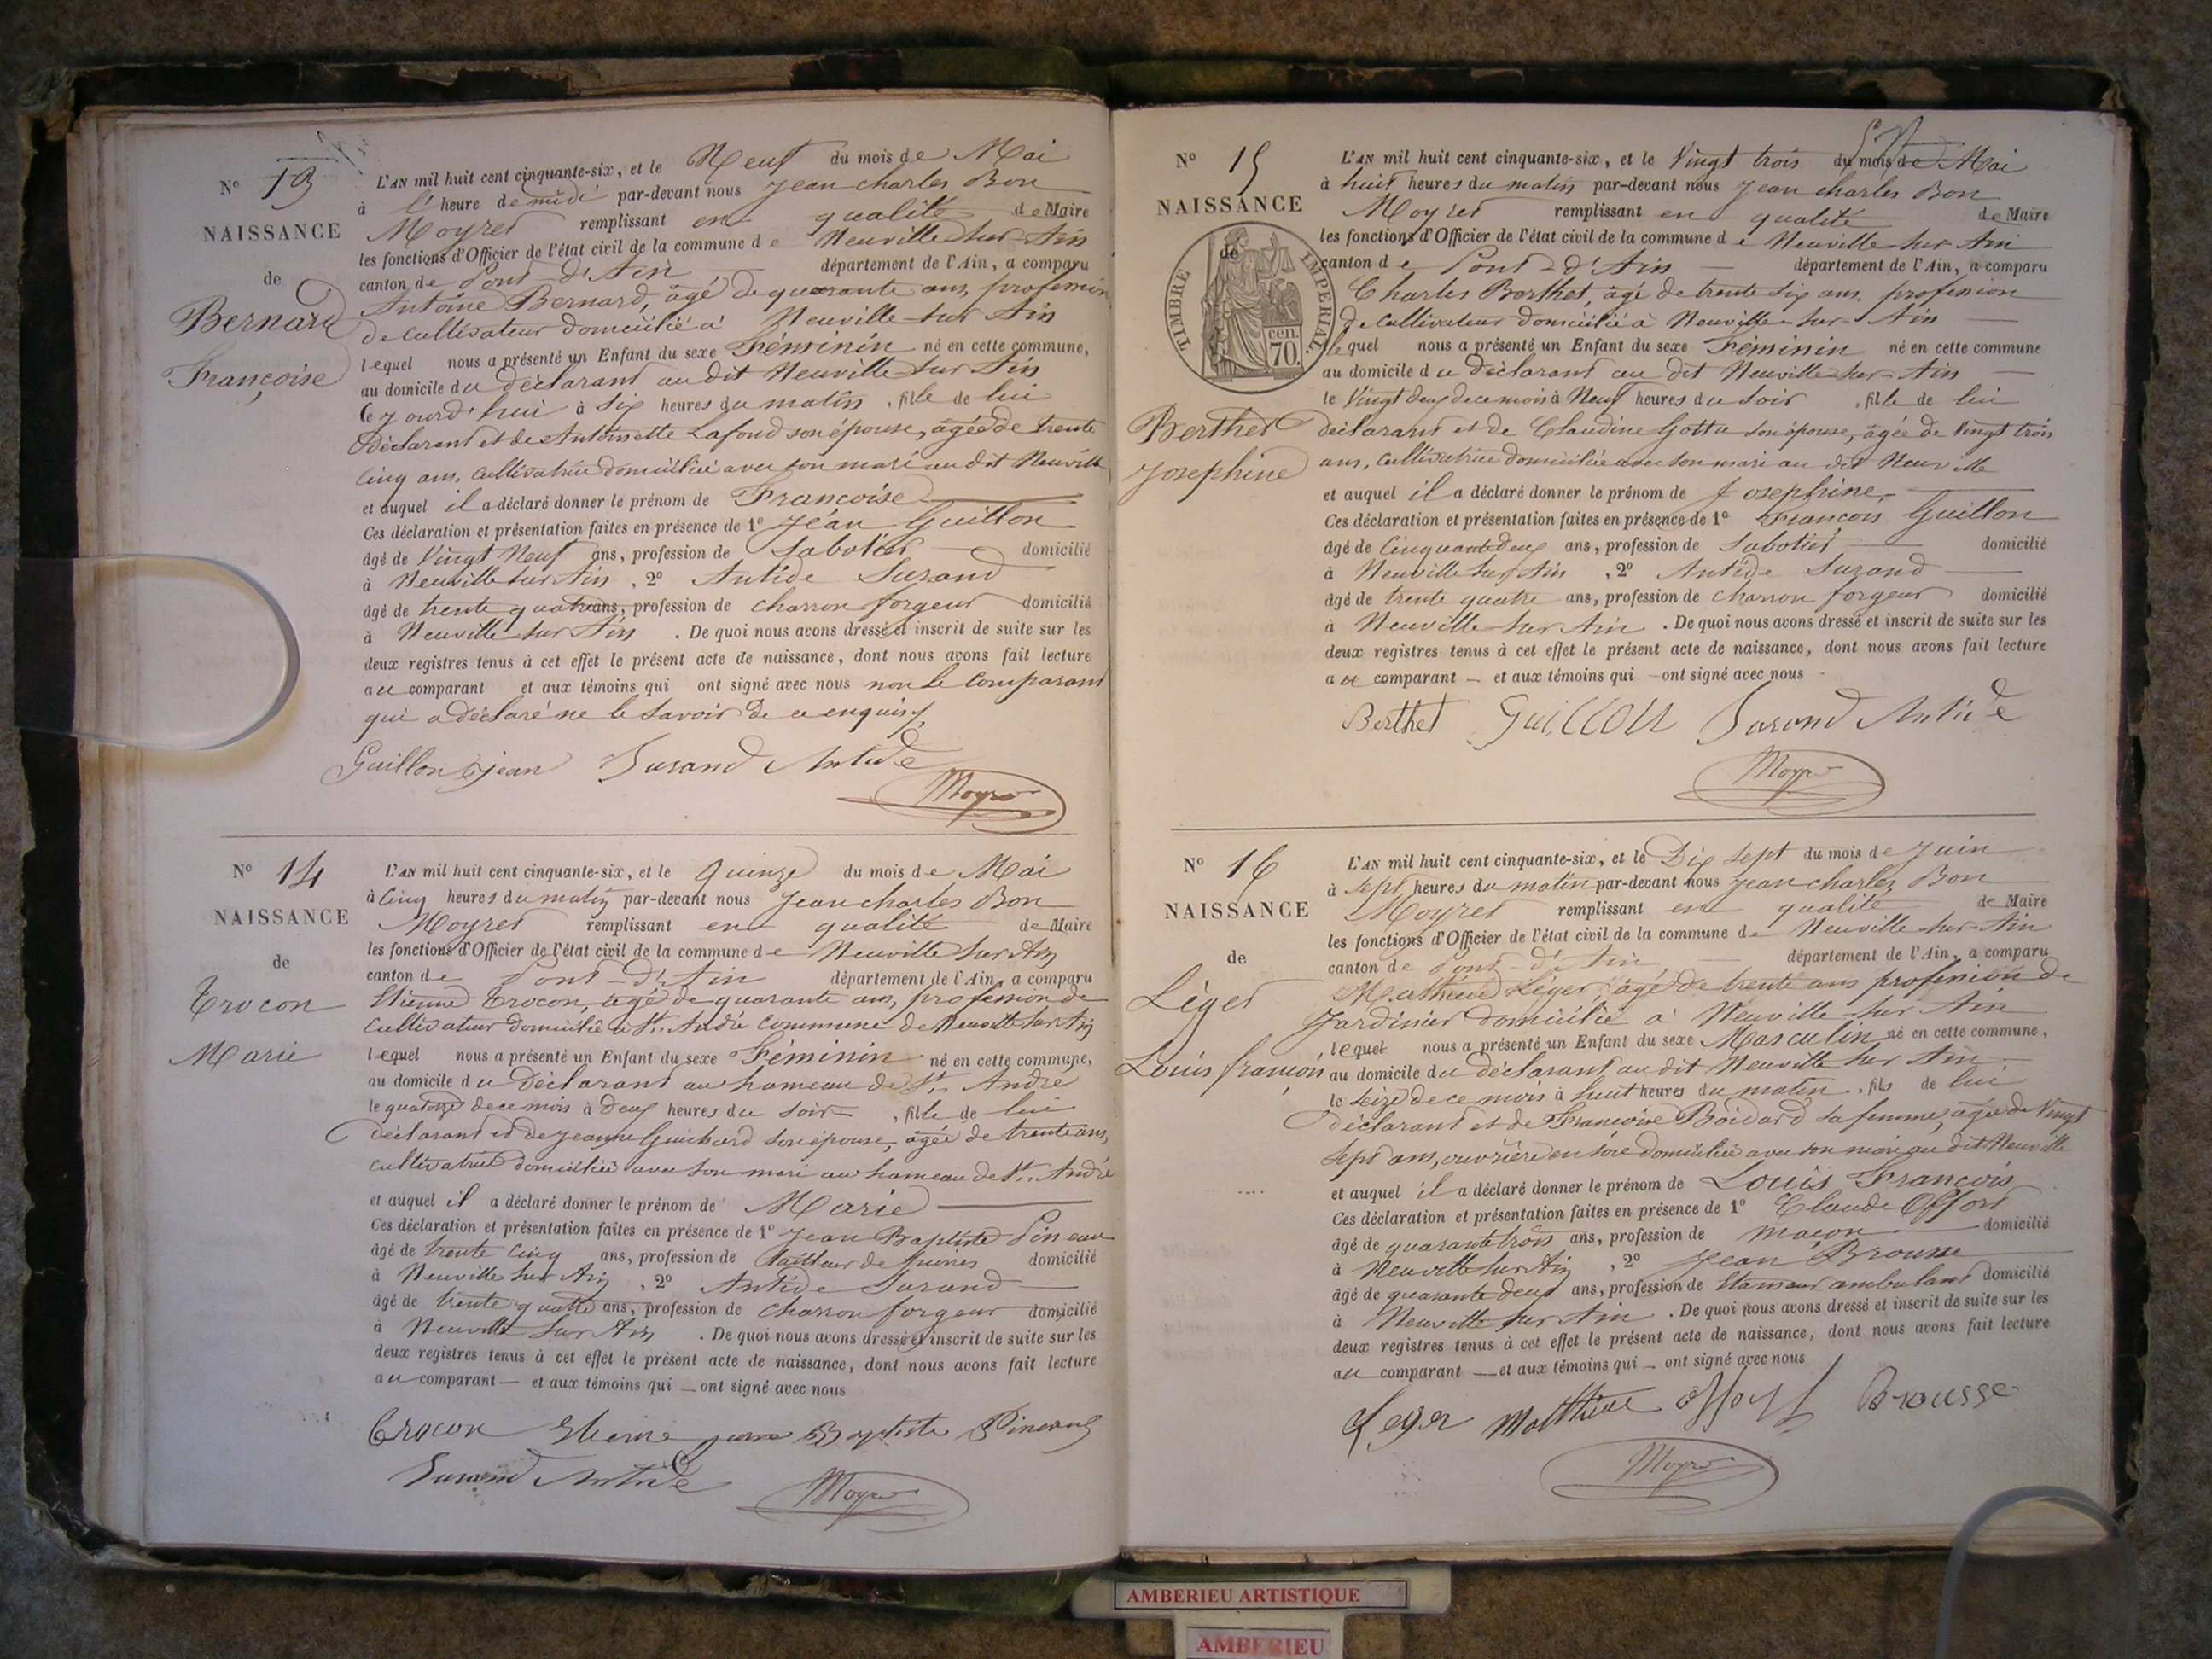 N° 13
NAISSANCE
de
Bernard
Françoise
L'AN mil huit cent cinquante-six, et le Neuf du mois de Mai
à l'heure de midi par-devant nous Jean charles Bon
Moyret remplissant en qualité de Maire
les fonctions d'Officier de l'état civil de la commune de Neuville sur Ain
canton de Pont d'Ain département de l'Ain, a comparu
Antoine Bernard, âgé de quarante ans, profession
de cultivateur domicilié à Neuville sur Ain
lequel nous a présenté un Enfant du sexe Féminin né en cette commune,
au domicile du déclarant au dit Neuville sur Ain
cejourd'hui à six heures du matin, fille de lui
déclarant et de Antoinette Lafond son épouse, âgée de trente
cinq ans, cultivatrice domiciliée avec son mari au dit Neuville
et auquel il a déclaré donner le prénom de Françoise
Ces déclaration et présentation faites en présence de 1° Jean Guillon
âgé de Vingt Neuf ans, profession de Sabotier domicilié
à Neuville sur Ain, 2° Antide Surand
âgé de trente quatre ans, profession de charron forgeur domicilié
à Neuville sur Ain. De quoi nous avons dressé et inscrit de suite sur les
deux registres tenus à cet effet le présent acte de naissance, dont nous avons fait lecture
au comparant et aux témoins qui ont signé avec nous non le comparant
qui a déclaré ne le savoir de ce enquis
Guillon jean Surand Antide
Moyret
N° 14
NAISSANCE
de
Trocon
Marie
L'AN mil huit cent cinquante-six, et le Quinze du mois de Mai
à cinq heures du matin par-devant nous Jean charles Bon
Moyret remplissant en qualité de Maire
les fonctions d'Officier de l'état civil de la commune de Neuville sur Ain
canton de Pont-d'Ain département de l'Ain, a comparu
Etienne Trocon, âgé de quarante ans, profession de
cultivateur domicilié à St. André commune de Neuville sur Ain
lequel nous a présenté un Enfant du sexe Féminin né en cette commune,
au domicile du Déclarant au hameau de St. André
le quatorze de ce mois à deux heures du soir, fille de lui
déclarant et de jeanne Guichard son épouse, âgée de trente ans,
cultivatrice domiciliée avec son mari au hameau de St. André
et auquel il a déclaré donner le prénom de Marie
Ces déclaration et présentation faites en présence de 1° Jean Baptiste Pineau
âgé de trente cinq ans, profession de tailleur de pierres domicilié
à Neuville sur Ain, 2° Antide Surand
âgé de trente quatre ans, profession de charron forgeur domicilié
à Neuville sur Ain. De quoi nous avons dressé et inscrit de suite sur les
deux registres tenus à cet effet le présent acte de naissance, dont nous avons fait lecture
au comparant et aux témoins qui ont signé avec nous
Trocon Etienne jean Baptiste
Surand Antide Moyret
N° 15
NAISSANCE
de
TIMBRE IMPERIAL
70 cen.
Berthet
Josephine
L'AN mil huit cent cinquante-six, et le Vingt trois du mois de Mai
à huit heures du matin par-devant nous Jean charles Bon
Moyret remplissant en qualité de Maire
les fonctions d'Officier de l'état civil de la commune de Neuville sur Ain
canton de Pont-d'Ain département de l'Ain, a comparu
Charles Berthet, âgé de trente six ans, profession
de cultivateur domicilié à Neuville-sur-Ain
lequel nous a présenté un Enfant du sexe Féminin né en cette commune
au domicile du déclarant au dit Neuville-sur-Ain
le Vingt deux de ce mois à Neuf heures du soir, fille de lui
déclarant et de Claudine Gotta son épouse, âgée de Vingt trois
ans, cultivatrice domiciliée avec son mari au dit Neuville
et auquel il a déclaré donner le prénom de Josephine
Ces déclaration et présentation faites en présence de 1° François Guillon
âgé de cinquante deux ans, profession de Sabotier domicilié
à Neuville sur Ain, 2° Antide Surand
âgé de trente quatre ans, profession de charron forgeur domicilié
à Neuville sur Ain. De quoi nous avons dressé et inscrit de suite sur les
deux registres tenus à cet effet le présent acte de naissance, dont nous avons fait lecture
au comparant et aux témoins qui ont signé avec nous
Berthet Guillon Surand Antide
Moyret
N° 16
NAISSANCE
de
Léger
Louis françois
L'AN mil huit cent cinquante-six, et le Dix sept du mois de Juin
à sept heures du matin par-devant nous Jean charles Bon
Moyret remplissant en qualité de Maire
les fonctions d'Officier de l'état civil de la commune de Neuville-sur-Ain
canton de Pont-d'Ain département de l'Ain, a comparu
Mathieu Léger, âgé de trente ans profession de
Jardinier domicilié à Neuville sur Ain
lequel nous a présenté un Enfant du sexe Masculin né en cette commune,
au domicile du déclarant au dit Neuville sur Ain
le seize de ce mois à huit heures du matin, fils de lui
déclarant et de Françoise Boidard sa femme, âgée de Vingt
sept ans, ouvrière en soie domiciliée avec son mari au dit Neuville
et auquel il a déclaré donner le prénom de Louis François
Ces déclaration et présentation faites en présence de 1° Claude Offort
âgé de quarante trois ans, profession de maçon domicilié
à Neuville sur Ain, 2° Jean Brousse
âgé de quarante deux ans, profession de Etameur ambulant domicilié
à Neuville sur Ain. De quoi nous avons dressé et inscrit de suite sur les
deux registres tenus à cet effet le présent acte de naissance, dont nous avons fait lecture
au comparant et aux témoins qui ont signé avec nous
Leger Matthieu Brousse
Moyret
AMBERIEU ARTISTIQUE
AMBERIEU